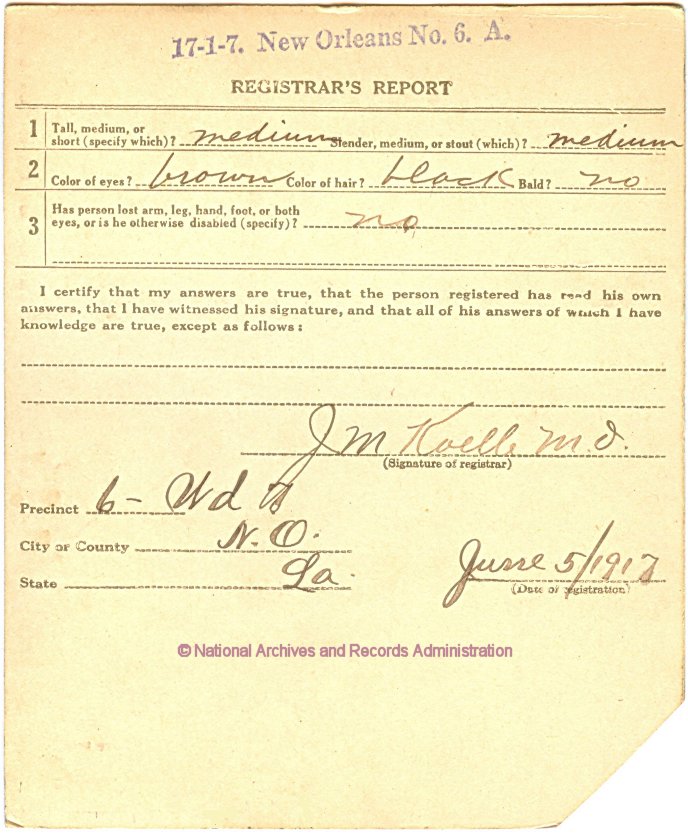 17-1-7. New Orleans No. 6. A.
REGISTRAR'S REPORT
1 Tall, medium, or short (specify which)? medium Slender, medium, or stout (which)? medium
2 Color of eyes? brown Color of hair? black Bald? no
3 Has person lost arm, leg, hand, foot, or both eyes, or is he otherwise disabled (specify)? no
I certify that my answers are true, that the person registered has read his own
answers, that I have witnessed his signature, and that all of his answers of which I have
knowledge are true, except as follows:
J M M.D.
(Signature of registrar)
Precinct 6- Wd
City or County N.O.
State La.
June 5/1917
(Date of registration)
© National Archives and Records Administration